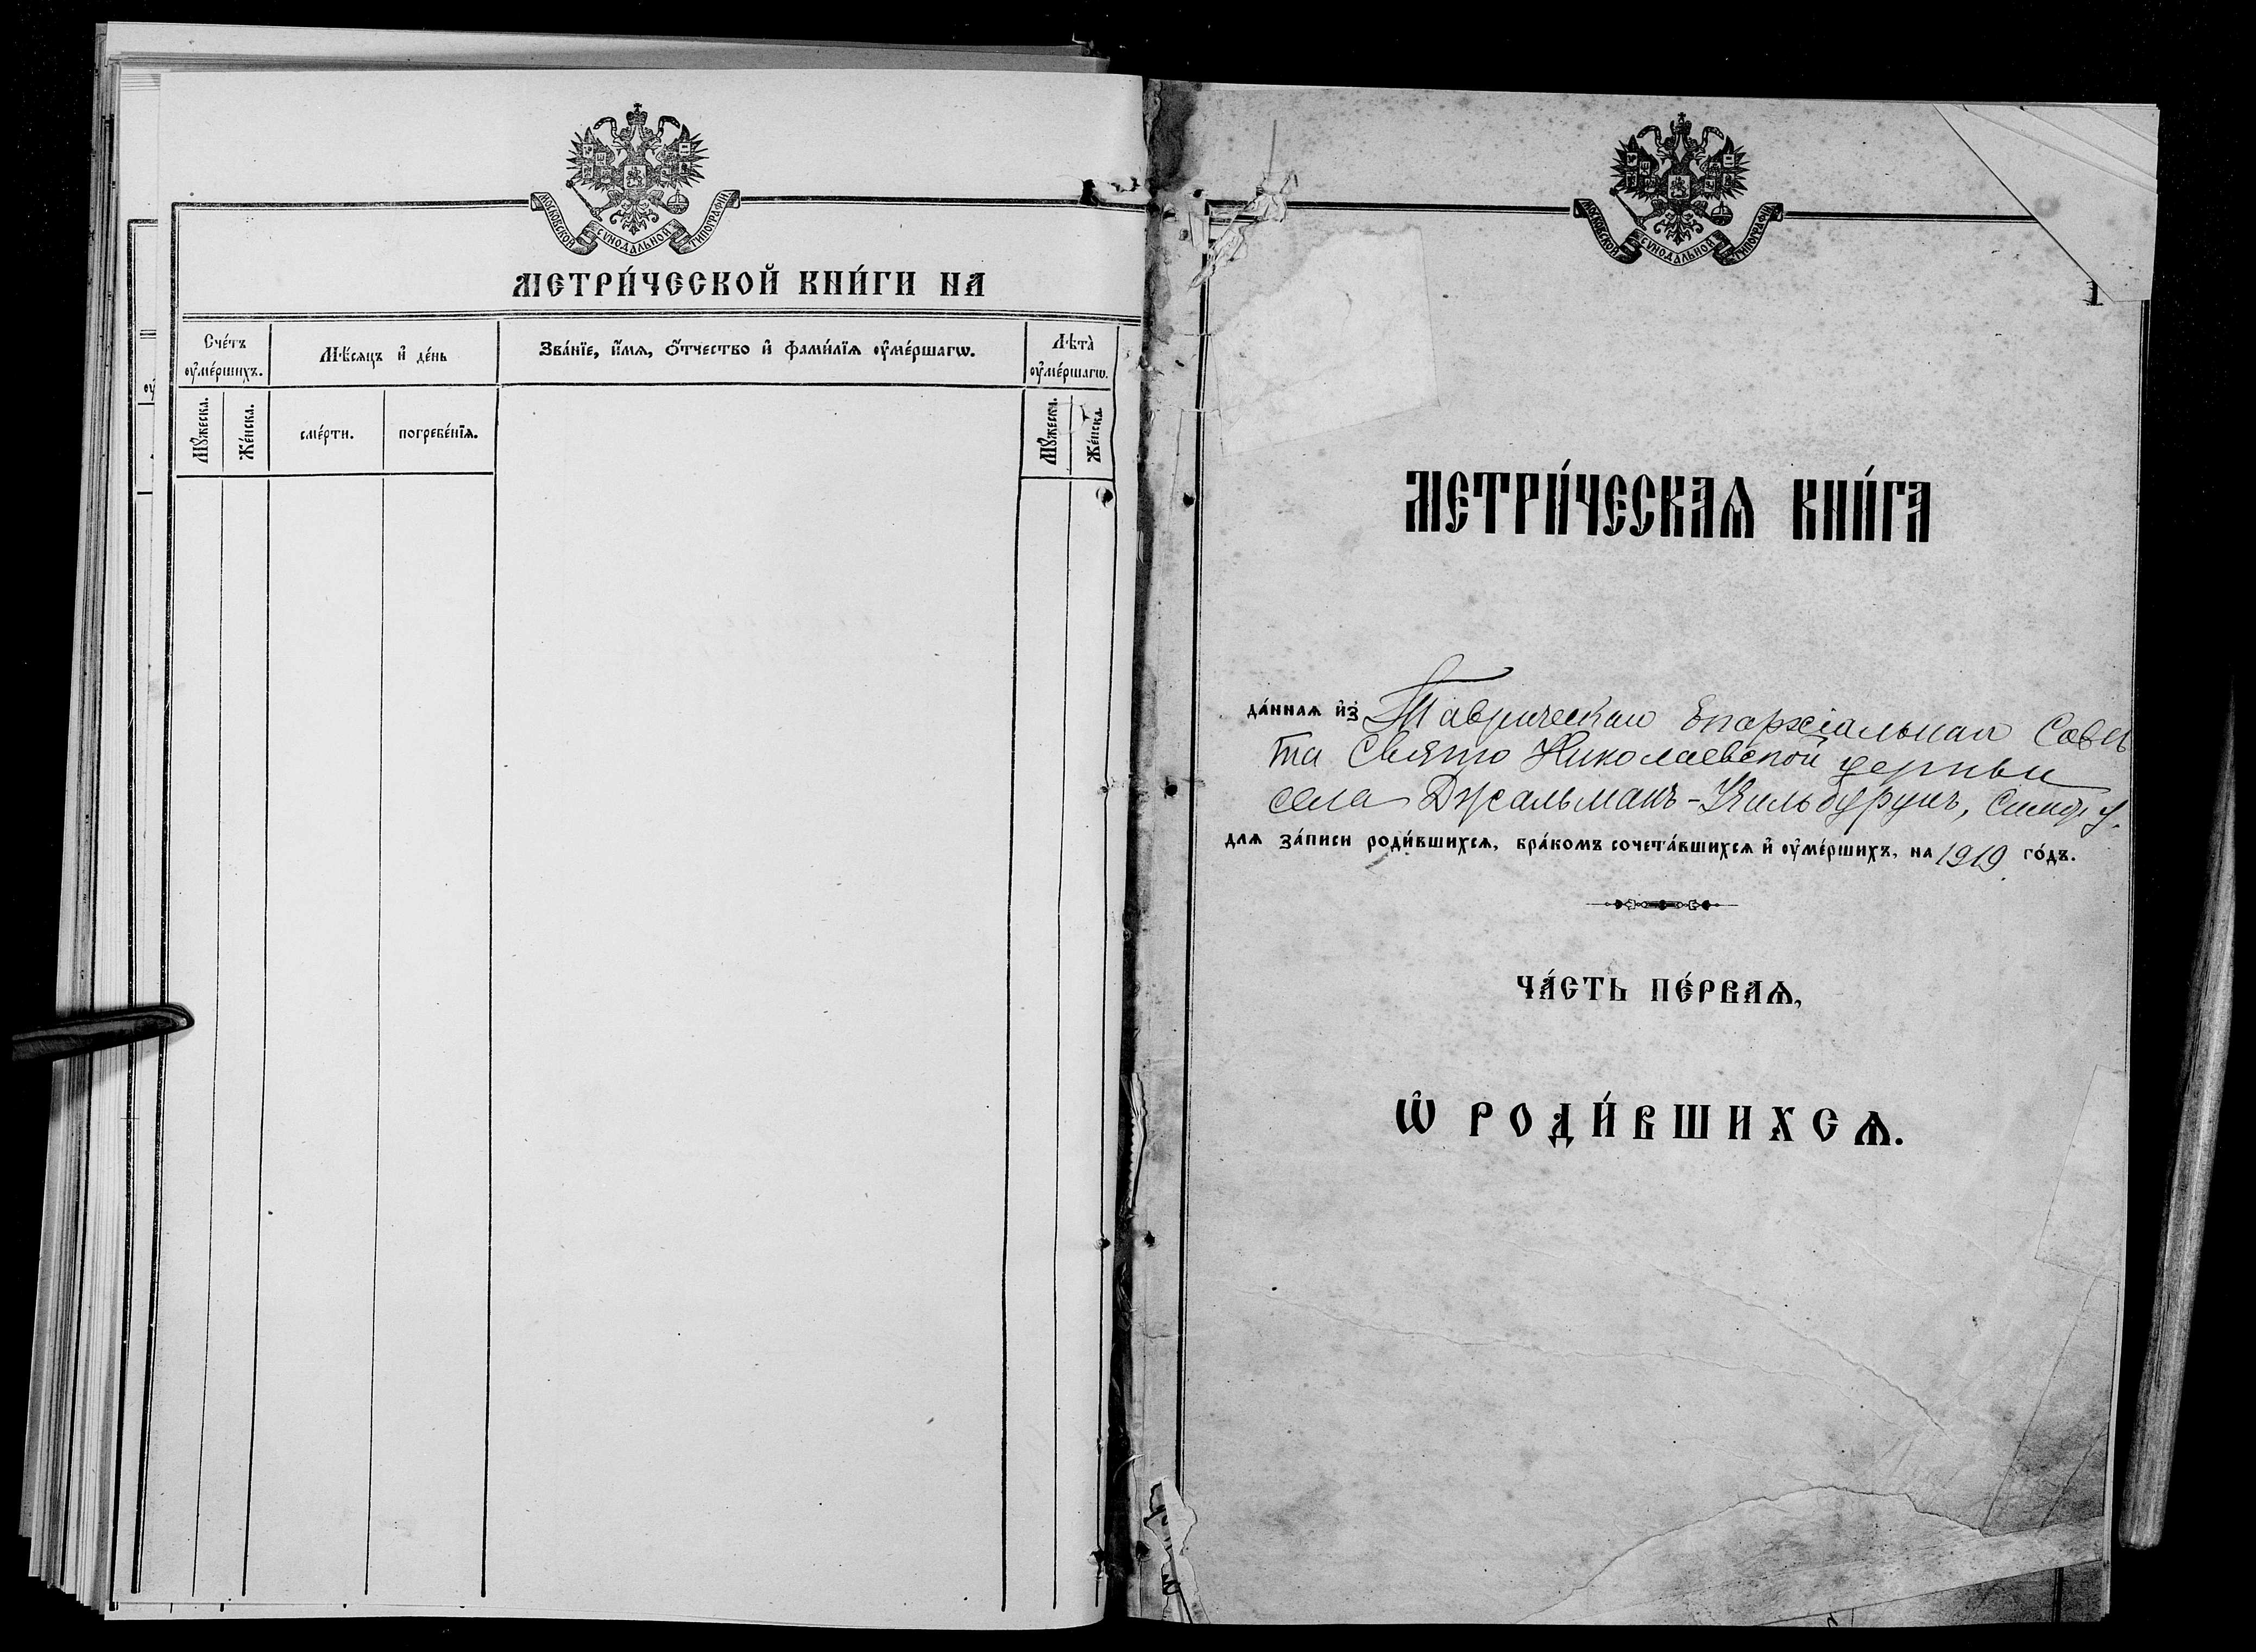 МОСКОВСКОЙ СѴНОДАЛЬНОЙ ТИПОГРАФІИ
МЕТРИ́ЧЕСКОЙ КНИ́ГИ НА
Сче́тъ ᲂу҆ме́ршихъ.
Мѣ́сяцъ и҆ де́нь
Зва́нїе, и҆́мѧ, ѻ҆́тчество и҆ фами́лїѧ ᲂу҆ме́ршагѡ.
Лѣ́та ᲂу҆ме́ршагѡ.
Мꙋ́жеска.
Же́нска.
сме́рти.
погребе́нїѧ.
Мꙋ́жеска.
Же́нска.
МОСКОВСКОЙ СѴНОДАЛЬНОЙ ТИПОГРАФІИ
1
МЕТРИ́ЧЕСКАѦ КНИ́ГА
да́ннаѧ и҆з̾ Таврическаго Епархіальнаго Совѣ
та Свято Николаевской церкви
села Джальманъ-Кильбурунъ, Симф. у.
длѧ за́писи роди́вшихсѧ, бра́комъ сочета́вшихсѧ и҆ ᲂу҆ме́ршихъ, на 1919 го́дъ.
ЧА́СТЬ ПЕ́РВАѦ,
Ѡ҆ РОДИ́ВШИХСѦ.